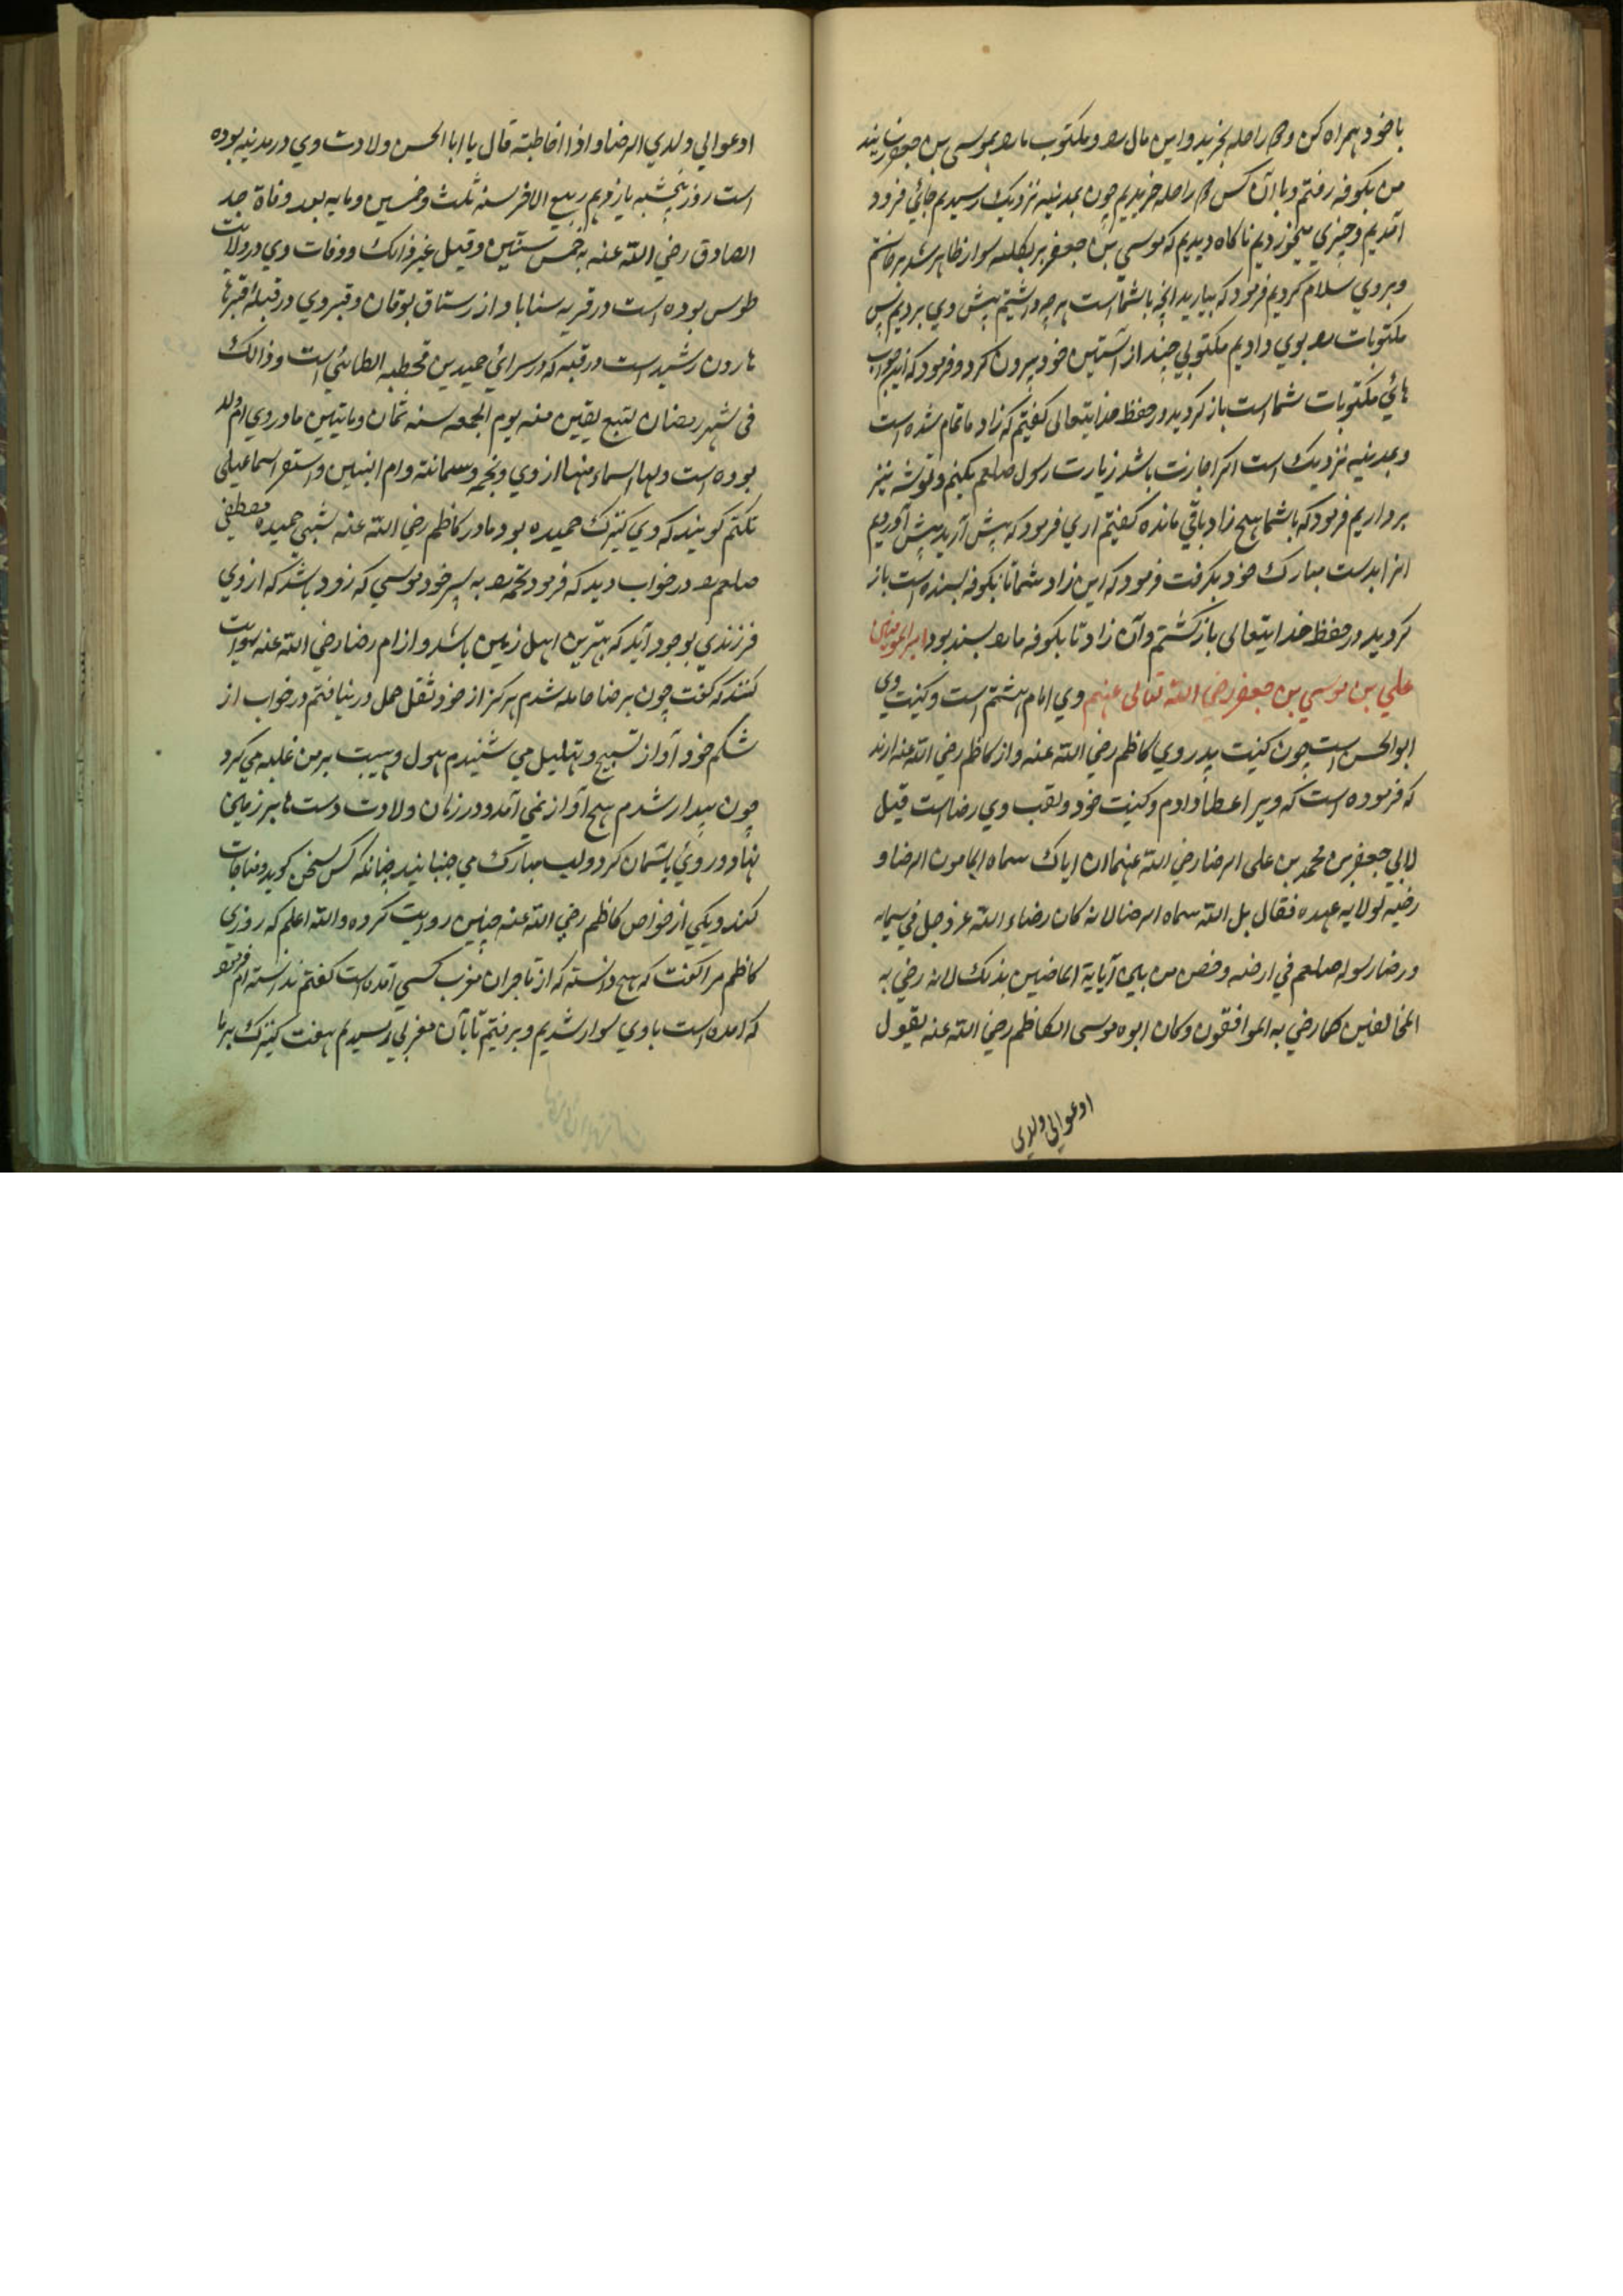 با خود همراه کن و دو راحله بخرید و این مال را و مکتوب ما را بموسی بن جعفر رسانید
من بکوفه رفتم و با آن کس دو راحله خریدیم چون بمدینه نزدیک رسیدیم جائی فرود
آمدیم و چیزی میخوردیم ناکاه دیدیم که موسی بن جعفر بر بغله سوار ظاهر شد برخاستم
و بر وی سلام کردیم فرمود که بیارید آنچه با شما است هر چه داشتیم پیش وی بردیم پس
مکتوبات را بوی دادیم مکتوبی چند از آستین خود بیرون کرد و فرمود که این جواب
هائی مکتوبات شما است باز کردید در حفظ خدایتعالی کفتیم که زاد ما تمام شده است
و بمدینه نزدیک است اکر اجازت باشد زیارت رسول صلعم بکنیم و توشه نیز
برداریم فرمود که با شما هیچ زاد باقی مانده کفتیم آری فرمود که پیش آرید پیش آوردیم
آنرا بدست مبارک خود بکرفت فرمود که این زاد شما تا بکوفه بسنده است باز
کردید در حفظ خدایتعالی باز کشتم و آن زاد تا بکوفه ما را بسند بود امیر المومنین
علی بن موسی بن جعفر رضی الله تعالی عنهم وی امام هشتم است و کنیت وی
ابوالحسن است چون کنیت پدر وی کاظم رضی الله عنه و از کاظم رضی الله عنه آرند
که فرموده است که ویرا عطا دادم و کنیت خود و لقب وی رضا است قیل
لابی جعفر بن محمد بن علی الرضا رضی الله عنهما ان اباک سماه المامون الرضا و
رضیه لولایه عهده فقال بل الله سماه الرضا لانه کان رضاء الله عز و جل فی سمایه
و رضا رسوله صلعم فی ارضه و خص من بین آبایة الماضین بذلک لانه رضی به
المخالفین کما رضی به الموافقون و کان ابوه موسی الکاظم رضی الله عنه یقول
ادعوا لی ولدی
ادعوا لی ولدی الرضا و اذا خاطبته قال یا ابا الحسن ولادت وی در مدینه بوده
است روز پنجشنبه یازدهم ربیع الاخر سنه ثلث و خمسین و مایه بعد وفاة جد
الصادق رضی الله عنه بخمس سنین و قیل غیر ذالک و وفات وی در ولایت
طوس بوده است در قریه سناباد از رستاق بوقان و قبر وی در قبله قبرها
هارون رشید است در قبه که در سرائی حمید بن قحطبه الطائی است و ذالک
فی شهر رمضان لتسع بقین منه یوم الجمعه سنه ثمان و ماتیین مادر وی ام ولد
بوده است و لها اسماء منها اروی و نجمه و سمانته و ام البنین و استقر اسما علی
تکتم کویند که وی کنیزک حمیده بود مادر کاظم رضی الله عنه شبی حمیده مصطفی
صلعم را در خواب دید که فرمود نجمه را به پسر خود موسی که زود باشد که از وی
فرزندی بوجود آید که بهترین اهل زمین باشد و از ام رضا رضی الله عنه روایت
کنند که کفت چون برضا حامله شدم هرکز از خود ثقل حمل در نیافتم در خواب از
شکم خود آواز تسبیح و تهلیل می شنیدم هول و هیبت بر من غلبه می کرد
چون بیدار شدم هیچ آواز نمی آمد و در زمان ولادت دست ها بر زمین
نهاد و روی بآسمان کرد و لب مبارک می جنبانید چنانکه کس سخن کوید و مناجات
کند و یکی از خواص کاظم رضی الله عنه چنین روایت کرده و الله اعلم که روزی
کاظم مرا کفت که هیچ دانسته که از تاجران مغرب کسی آمده است کفتم ندانسته ام فرمود
که امده است با وی سوار شدیم و برفتیم تا بآن مغربی رسیدیم هفت کنیزک بر ما